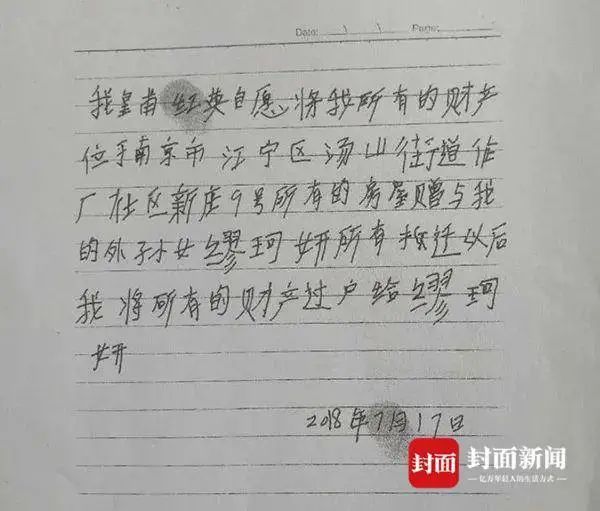 Date: Page:
我皇甫红英自愿、将我所有的财产
位于南京市江宁区汤山街道作
厂社区新庄9号所有的房屋赠与我
的外孙女缪珂妍所有拆迁以后
我将所有的财产过户给缪珂
妍
2018年7月17日
封面 封面新闻
亿万年轻人的生活方式